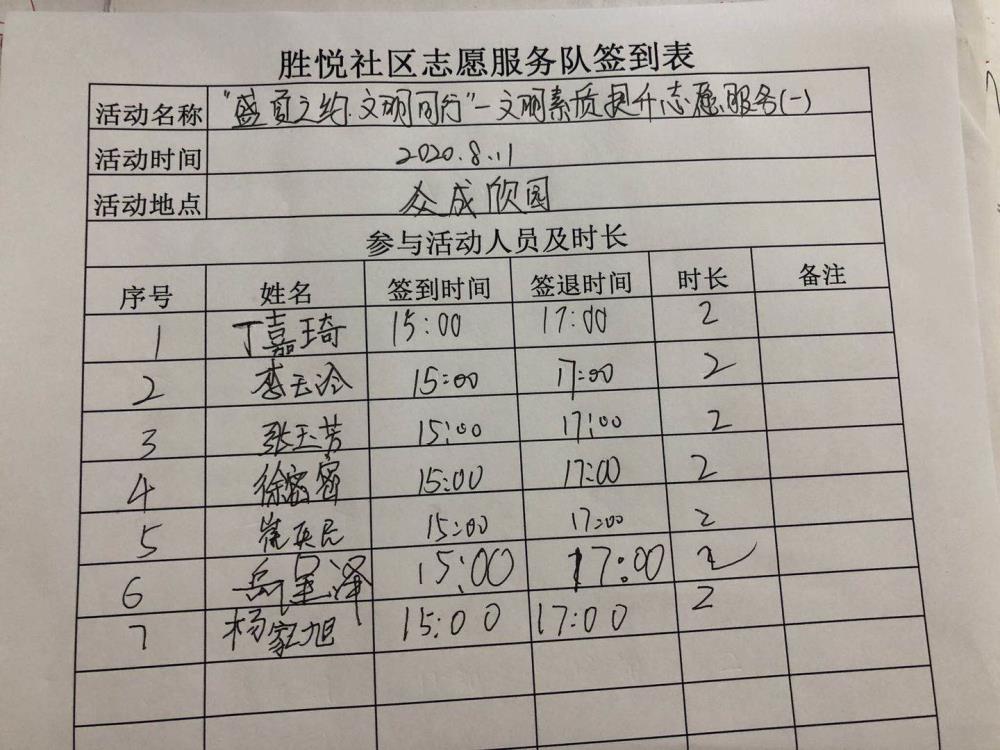 胜悦社区志愿服务队签到表
活动名称 "盛夏之约.文明同行"—文明素质提升志愿服务(一)
活动时间 2020.8.11
活动地点 众成欣园
参与活动人员及时长
序号 姓名 签到时间 签退时间 时长 备注
1 丁嘉琦 15:00 17:00 2
2 李玉玲 15:00 17:00 2
3 张玉芳 15:00 17:00 2
4 徐密密 15:00 17:00 2
5 崔英民 15:00 17:00 2
6 15:00 17:00 2
7 杨家旭 15:00 17:00 2